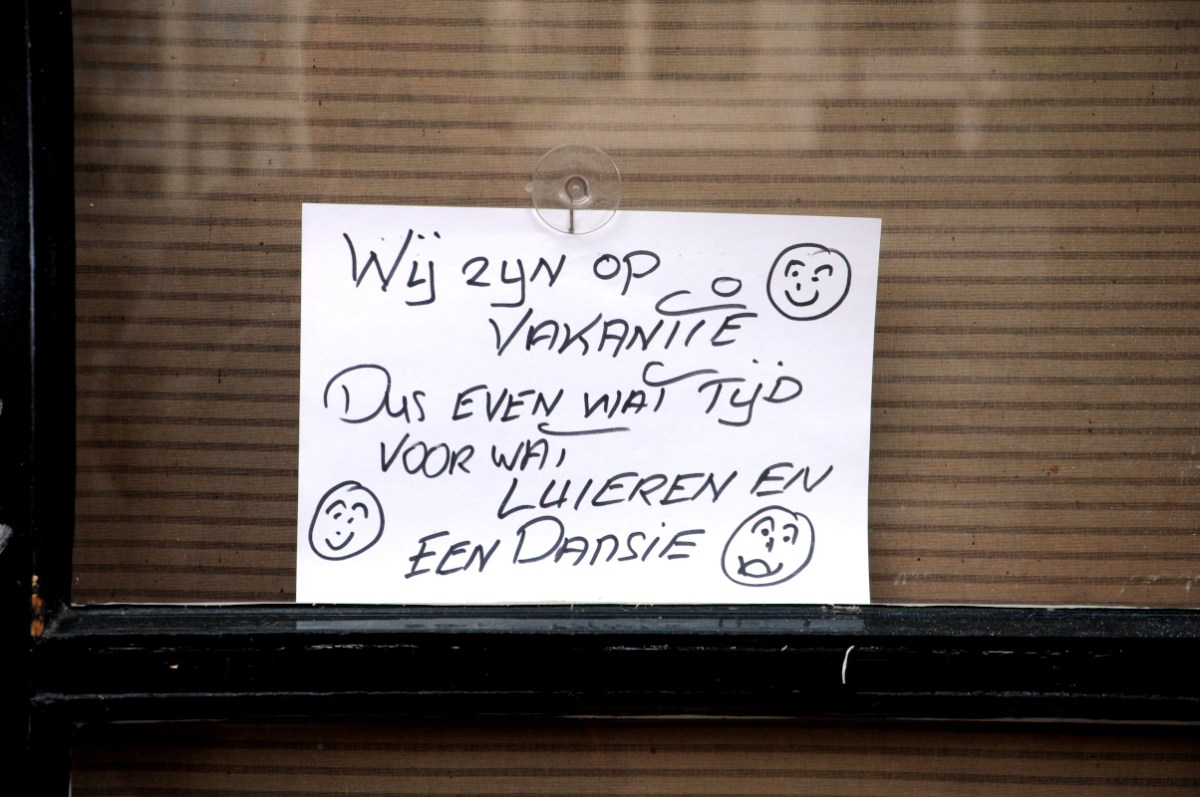 Wij zijn op
VAKANTIE
Dus EVEN WAT TIJD
VOOR WAT
LUIEREN EN
EEN DANSIE